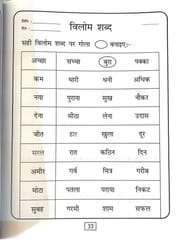 विलोम शब्द
सही विलोम शब्द पर गोला बनाइए:-
अच्छा सच्चा बुरा पक्का
कम भारी धनी अधिक
नया पुराना सुख नौकर
देना मोठा लेना उदास
जीत हार खुला दूर
सरल रात कठिन दिन
अमीर गर्व मित्र गरीब
मोटा पतला पराया निकट
सुबह गरमी शाम सफल
33